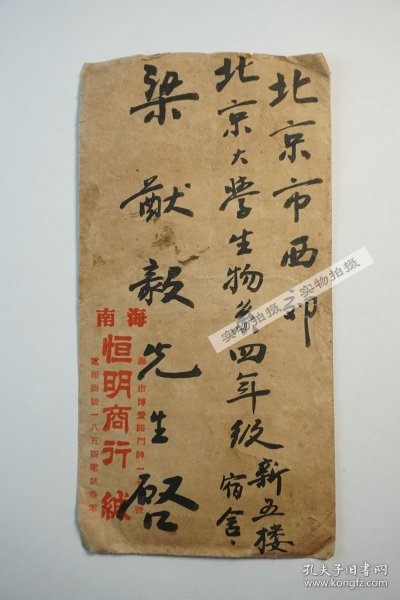 北京市西郊
北京大學生物系四年级新五楼
宿舍.
梁猷毅先生啓
海南
恒明商行緘
海 市博愛路門牌一 號
電報掛號一八五四電話
实物拍摄
实物拍摄
孔夫子旧书网
www.kongfz.com